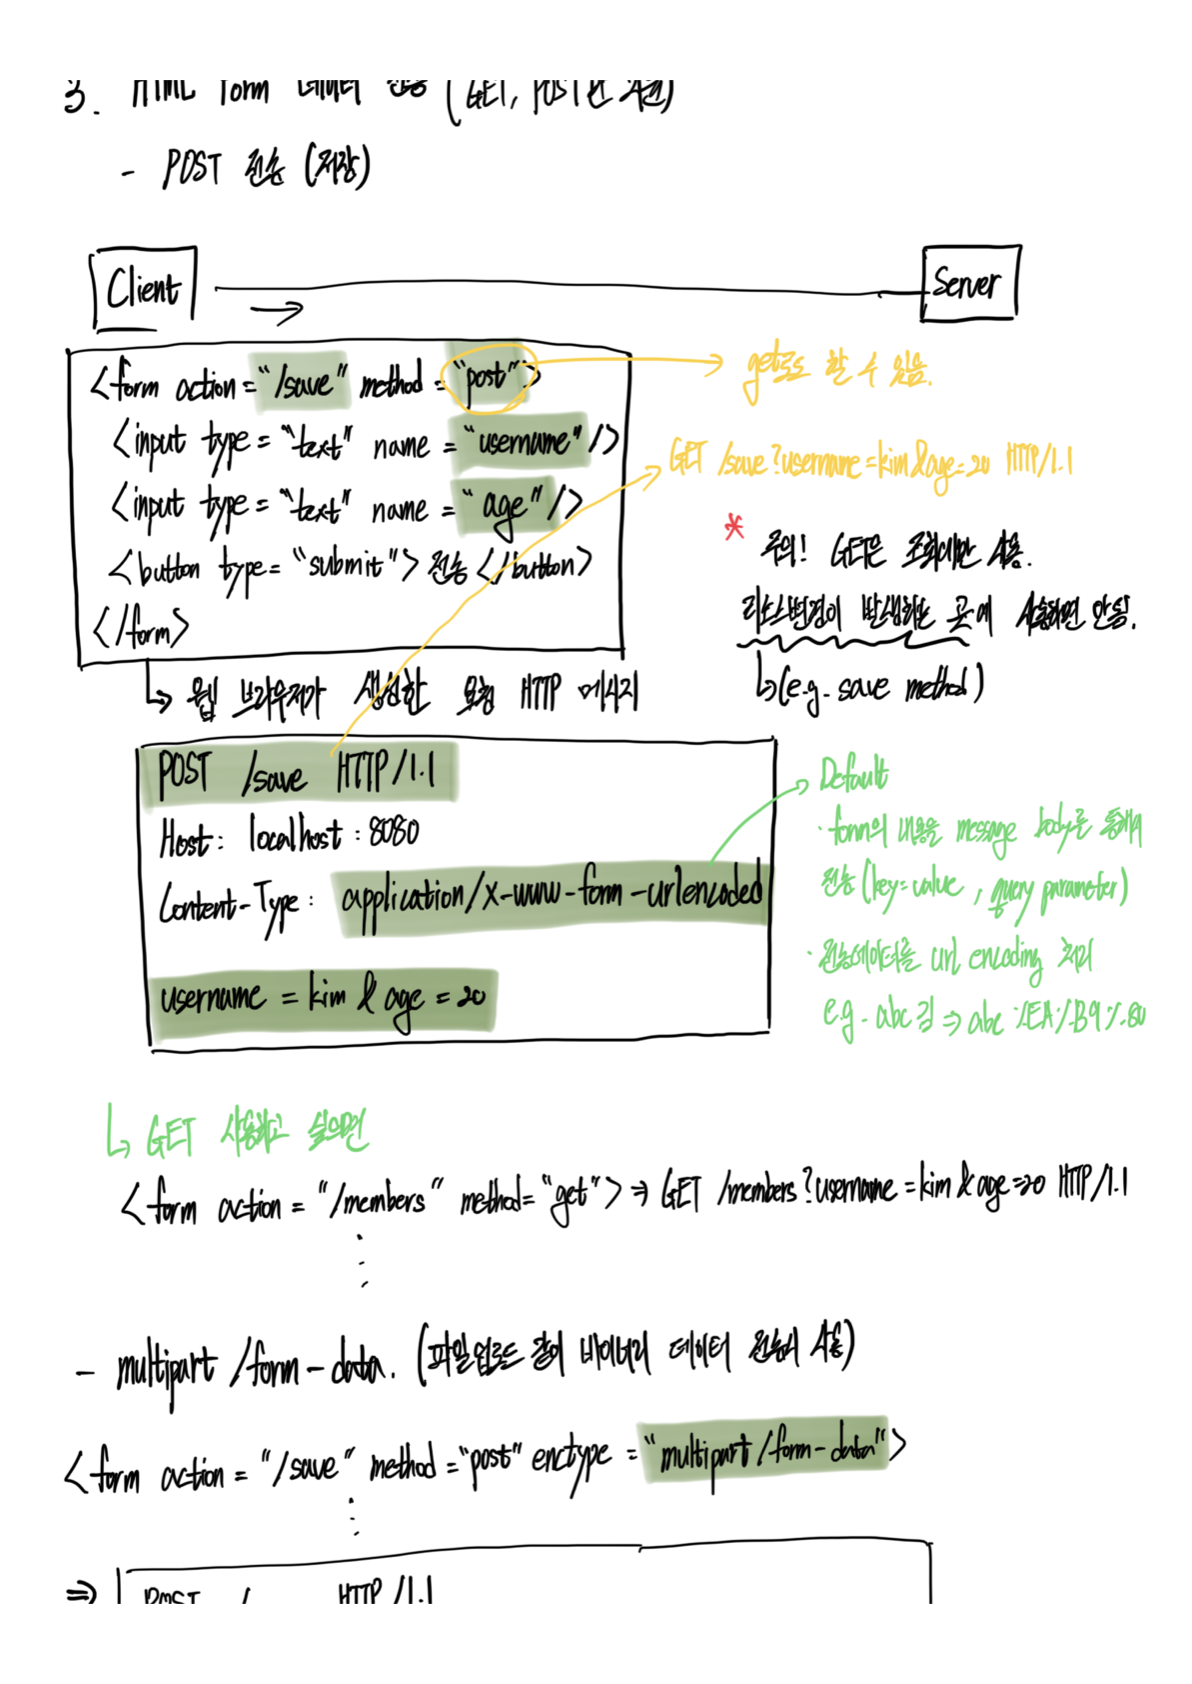 3. HTML Form 데이터 전송 (GET, POST만 지원)
- POST 전송 (저장)
Client
Server
<form action="/save" method="post">
<input type="text" name="username"/>
<input type="text" name="age"/>
<button type="submit">전송</button>
</form>
get로도 할 수 있음.
GET /save?username=kim&age=20 HTTP/1.1
* 주의! GET은 조회에만 사용.
리소스변경이 발생하는 곳에 사용하면 안됨.
↳(e.g. save method)
↳ 웹 브라우저가 생성한 요청 HTTP 메시지
POST /save HTTP/1.1
Host: localhost:8080
Content-Type: application/x-www-form-urlencoded
username=kim&age=20
Default
· form의 내용을 message body를 통해서
전송(key=value, query parameter)
· 전송데이터를 url encoding 처리
e.g. abc김 ⇒ abc%EA%B9%80
↳ GET 사용하고 싶으면
<form action="/members" method="get"> ⇒ GET /members?username=kim&age=20 HTTP/1.1
- multipart/form-data. (파일업로드 같이 바이너리 데이터 전송시 사용)
<form action="/save" method="post" enctype="multipart/form-data">
⇒ POST / HTTP/1.1